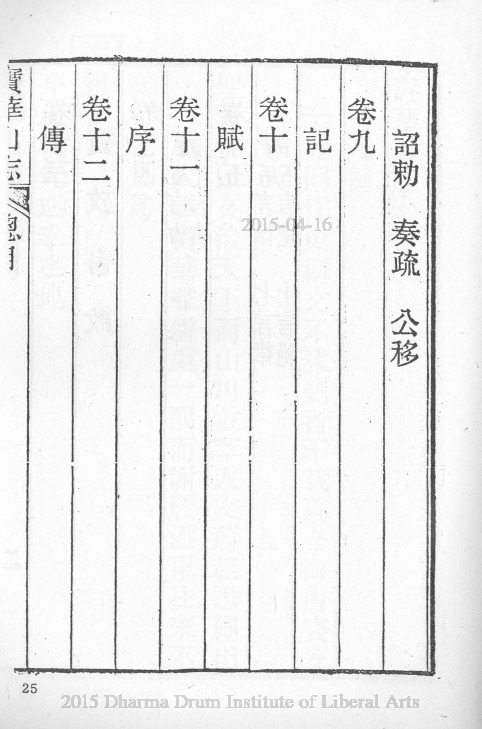 詔勅　奏疏　公移
卷九
記
卷十
賦
卷十一
序
卷十二
傳
寶華山志　總目
25
2015-04-16
2015 Dharma Drum Institute of Liberal Arts